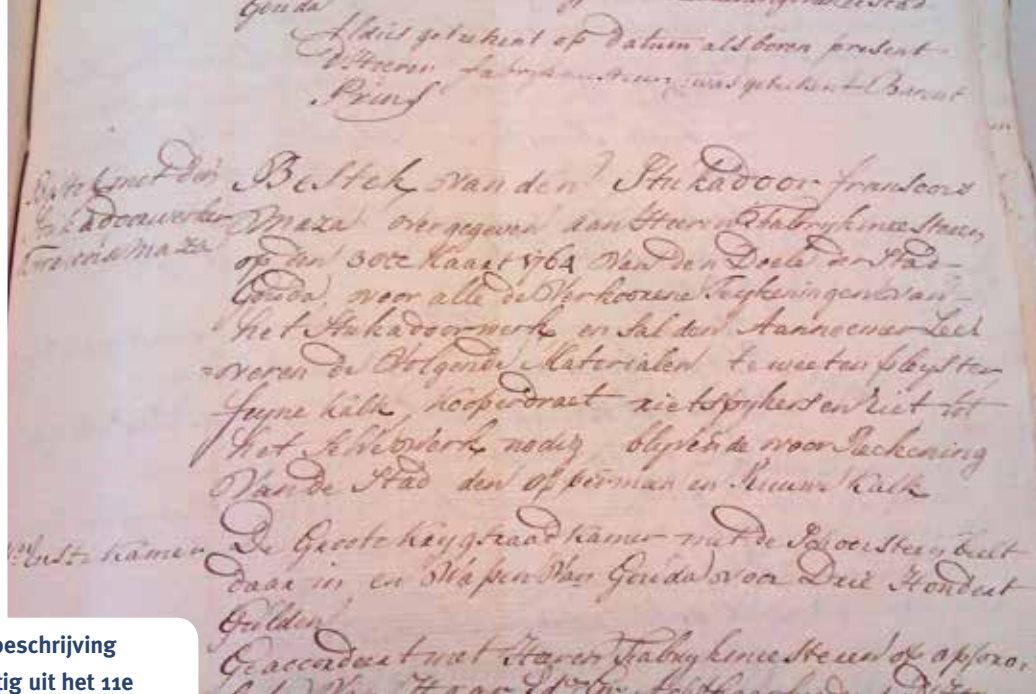 Gouda
Aldus getekent op datum als boven present
D'Heeren fabrykmeesteren was getekent Barent
Prins
Bestek met den
Stukadoorwerker
Francois Maza
Bestek van den Stukadoor fransoois
Maza overgegeven aan Heeren Fabrykmeesteren
op den 30ste Maart 1764 Van den Doele der Stad
Gouda, voor alle de Verkoorene Teykeningen van
het Stukadoorwerk en sal den Aannemer Lee
=veren de Volgende Materialen te weeten pleyster
feyne kalk, kooperdraet rietspykers en riet tot
het werk nodig blyvende voor Reckening
Van de Stad den opperman en Ruuwe Kalk
Kamer De Groote Krygsraad Kamer met de Schoorsteen
daar in en Wapen Van Gouda voor Drie Hondert
Gulden
Geaccordeert met Heeren Fabrykmeesteren op
beschrijving
tig uit het 11e